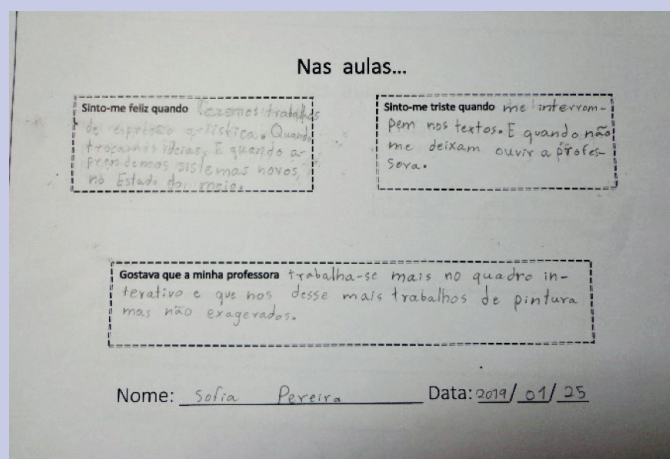 Nas aulas...
Sinto-me feliz quando fazemos trabalhos
de expressão artística. Quando
trocamos ideias. E quando a-
prendemos sistemas novos,
no Estado do meio.
Sinto-me triste quando me interrom-
pem nos textos. E quando não
me deixam ouvir a profes-
sora.
Gostava que a minha professora trabalha-se mais no quadro in-
terativo e que nos desse mais trabalhos de pintura
mas não exagerados.
Nome: Sofia Pereira Data: 2019/01/25